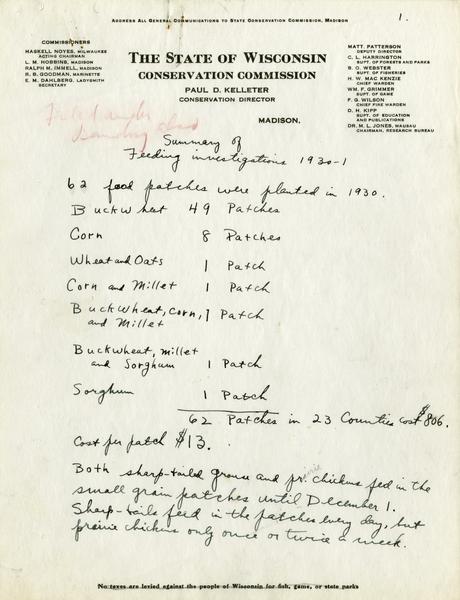 ADDRESS ALL GENERAL COMMUNICATIONS TO STATE CONSERVATION COMMISSION, MADISON
1.
COMMISSIONERS
HASKELL NOYES, MILWAUKEE
ACTING CHAIRMAN
L. M. HOBBINS, MADISON
RALPH M. IMMELL, MADISON
R. B. GOODMAN, MARINETTE
E. M. DAHLBERG, LADYSMITH
SECRETARY
THE STATE OF WISCONSIN
CONSERVATION COMMISSION
PAUL D. KELLETER
CONSERVATION DIRECTOR
MADISON.
MATT. PATTERSON
DEPUTY DIRECTOR
C. L. HARRINGTON
SUPT. OF FORESTS AND PARKS
B. O. WEBSTER
SUPT. OF FISHERIES
H. W. MAC KENZIE
CHIEF WARDEN
WM. F. GRIMMER
SUPT. OF GAME
F. G. WILSON
CHIEF FIRE WARDEN
D. H. KIPP
SUPT. OF EDUCATION
AND PUBLICATIONS
DR. M. L. JONES, WAUSAU
CHAIRMAN, RESEARCH BUREAU
Summary of
Feeding investigations 1930-1
62 food patches were planted in 1930.
Buckwheat 49 Patches
Corn 8 Patches
Wheat and Oats 1 Patch
Corn and Millet 1 Patch
Buckwheat, Corn, 1 Patch
and Millet
Buckwheat, millet
and Sorghum 1 Patch
Sorghum 1 Patch
62 Patches in 23 Counties cost $806.
Cost per patch $13.
Both sharp-tailed grouse and prairie chickens fed in the
small grain patches until December 1.
Sharp-tails feed in the patches every day, but
prairie chickens only once or twice a week.
No taxes are levied against the people of Wisconsin for fish, game, or state parks